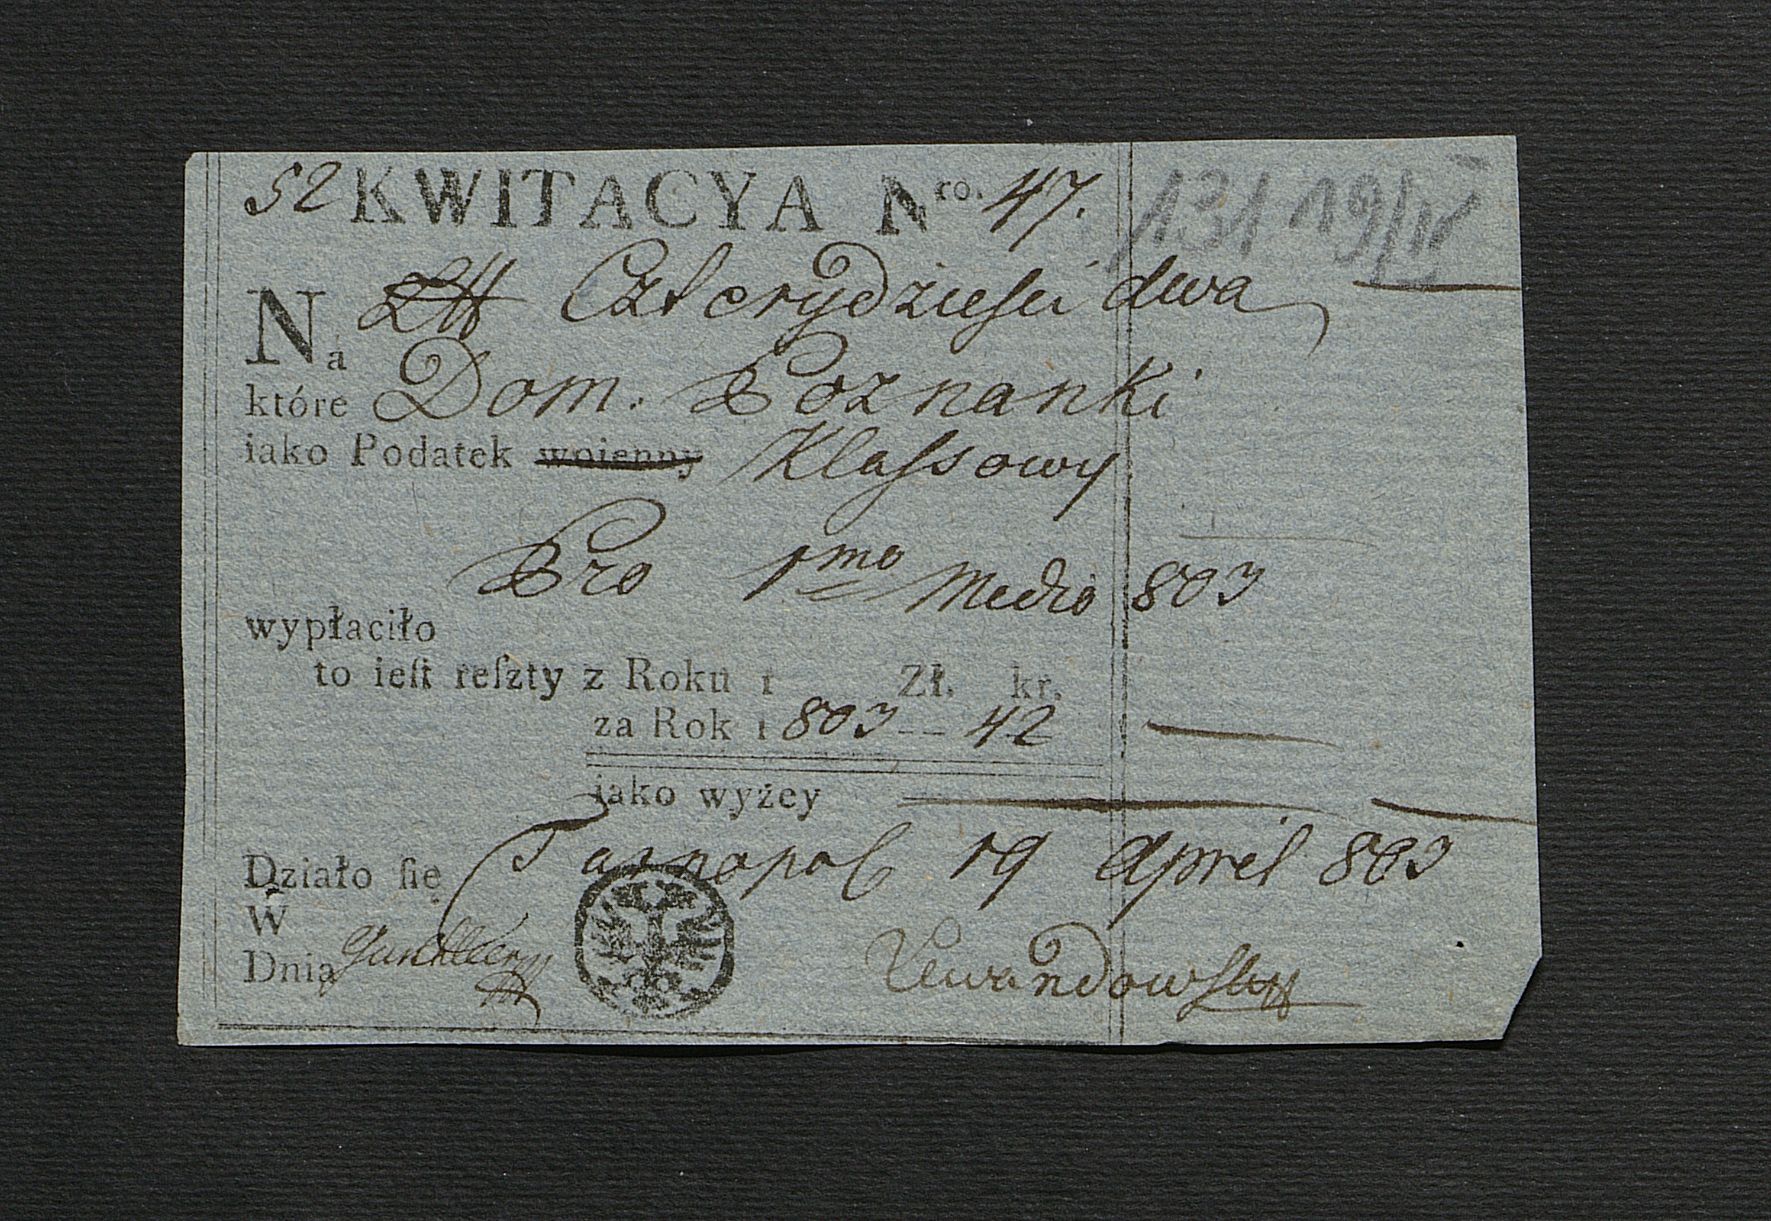 52 KWITACYA Nro. 47.
131 19/IV
Na Złł Czterydzieści dwa
które Dom. Poznanki
iako Podatek woienny Klaſsowy
Pro 1mo Medio 803
wypłaciło
to ieſt reſzty z Roku 1 Zł. kr.
za Rok 1803 -- 42
jako wyżey
Działo ſię Tarnopol 19 April 803
W
Dnia
Lewandowsky